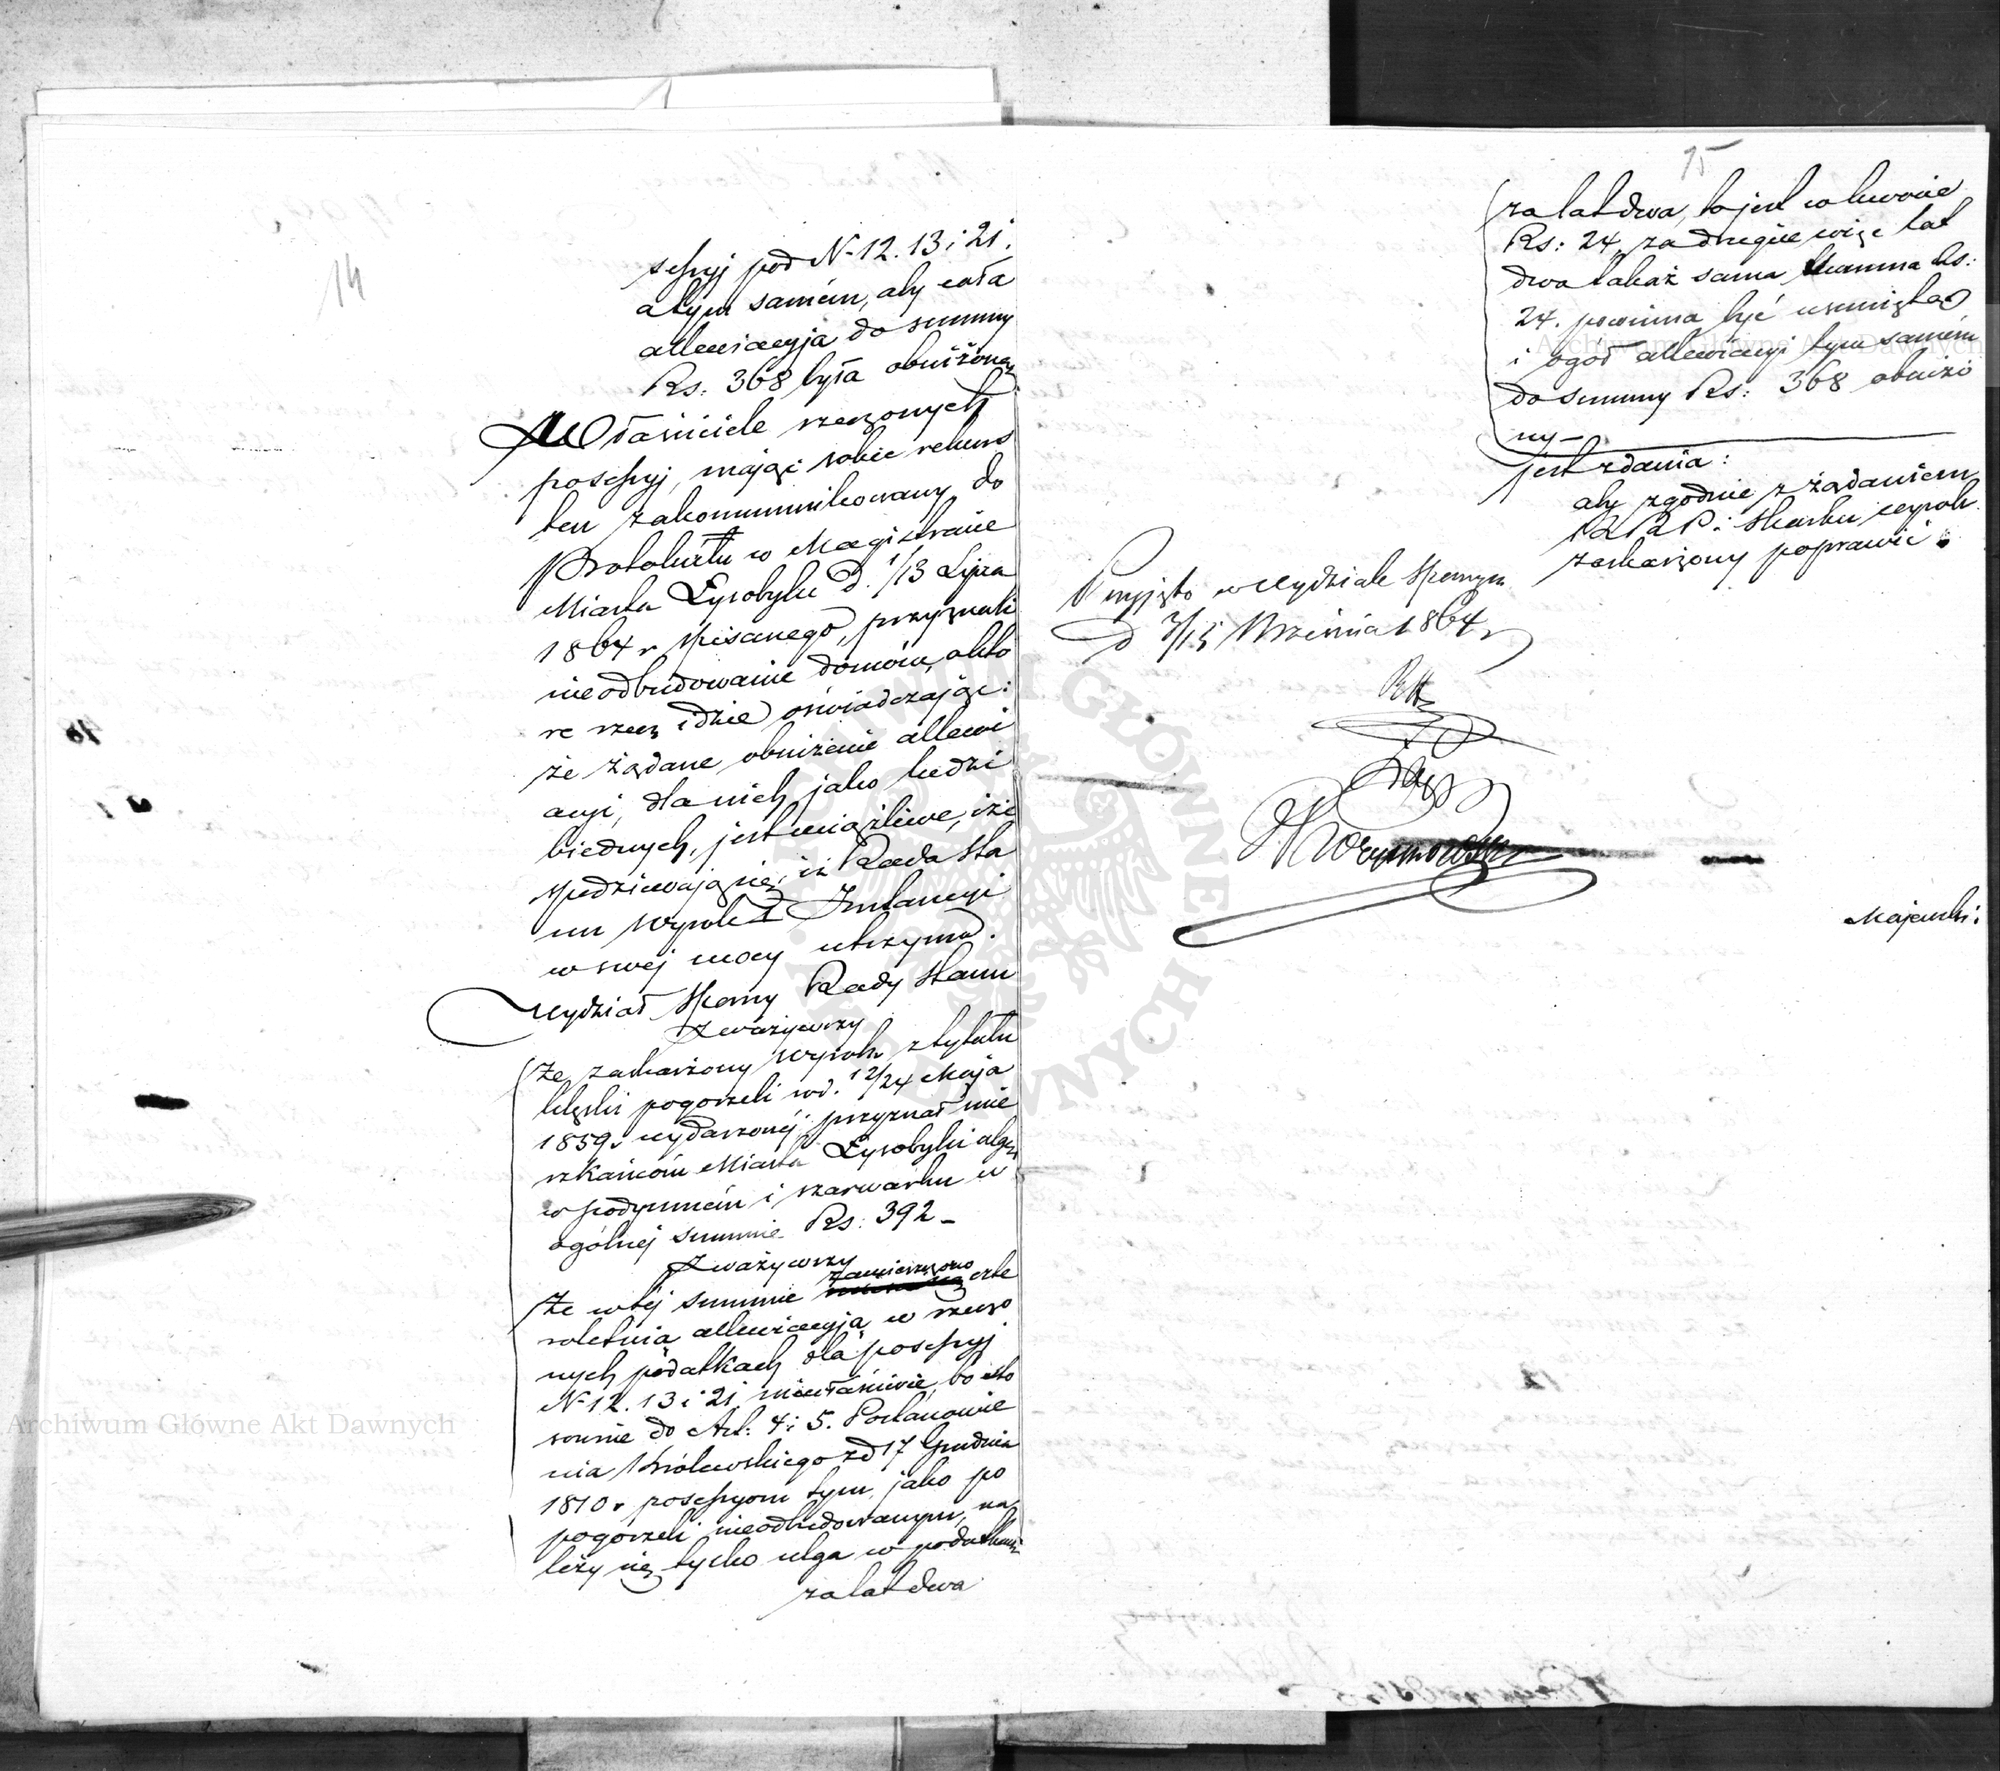 14
sessyj pod N. 12. 13 i 21.
a tym samém, aby cała
allewiacyja do summy
Rs. 368 była obniżoną.
Właściciele rzeczonych
posessyj, mając sobie rekurs
ten zakommunikowany, do
Protokułu w Magistracie
Miasta Łysobyki d. 1/13 Lipca
1864 r. spisanego, przyznali
nieodbudowanie domów, o któ
re rzecz idzie, oświadczając:
że żądane obniżenie allewi
acyi, dla nich jako ludzi
biednych, jest uciążliwe, i że
spodziewają się, iż Rada Sta
nu wyrok I Instancyi
w swéj mocy utrzyma.
Wydział Sporny Rady Stanu
Zważywszy
że zaskarżony wyrok z tytułu
klęski pogorzeli w d. 12/24 Maja
1859 r. wydarzonéj, przyznał mie
szkańcom Miasta Łysobyki ulgę
w podymném i szarwarku w
ogólnéj summie Rs. 392 -
Zważywszy
że w téj summie zamieszczono czte
roletnia allewiacyja w rzeczo
nych podatkach dla posessyj
N. 12. 13 i 21, niewłaściwie, bo sto
sownie do Art: 4 i 5. Postanowie
nia Królewskiego z d 17 Grudnia
1810 r. posessyom tym, jako po
pogorzeli nieodbudowanym, na
leży się tylko ulga w podatkach
za lat dwa
15
za lat dwa, to jest w kwocie
Rs: 24, za drugie więc lat
dwa takaż sama summa Rs:
24. powinna być usunięta
i ogół allewiacyi tym samém
do summy Rs: 368 obniżo
ny -
jest zdania:
aby zgodnie z żądaniem
K R P. i Skarbu wyrok
zaskarżony poprawić.
Przyjęto w Wydziale Spornym
d 3/15 Września 1864 r
Majewski.
Archiwum Główne Akt Dawnych
Archiwum Główne Akt Dawnych